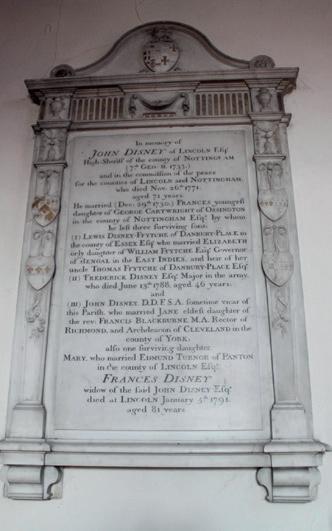 In memory of
JOHN DISNEY of LINCOLN Esqr
High-Sheriff of the county of NOTTINGHAM
(7th GEO. II. 1733.)
and in the commission of the peace
for the counties of LINCOLN and NOTTINGHAM,
who died Novr 26th 1771.
aged 71 years.
He married (Dec: 29th 1730.) FRANCES youngest
daughter of GEORGE CARTWRIGHT of OSSINGTON
in the county of NOTTINGHAM Esqr by whom
he left three surviving sons:
(I) LEWIS DISNEY-FFYTCHE of DANBURY-PLACE in
the county of ESSEX Esqr who married ELIZABETH
only daughter of WILLIAM FFYTCHE Esqr Governor
of BENGAL in the EAST INDIES, and heir of her
uncle THOMAS FFYTCHE of DANBURY-PLACE Esqr
(II) FREDERICK DISNEY Esqr Major in the army,
who died June 13th 1788, aged 46 years.
and
(III) JOHN DISNEY D.D. F.S.A. sometime vicar of
this Parish, who married JANE eldest daughter of
the rev: FRANCIS BLACKBURNE M.A. Rector of
RICHMOND, and Archdeacon of CLEVELAND in the
county of YORK:
also one surviving daughter
MARY, who married EDMUND TURNOR of PANTON
in the county of LINCOLN Esqr
FRANCES DISNEY
widow of the said JOHN DISNEY Esqr
died at LINCOLN January 5th 1791.
aged 81 years